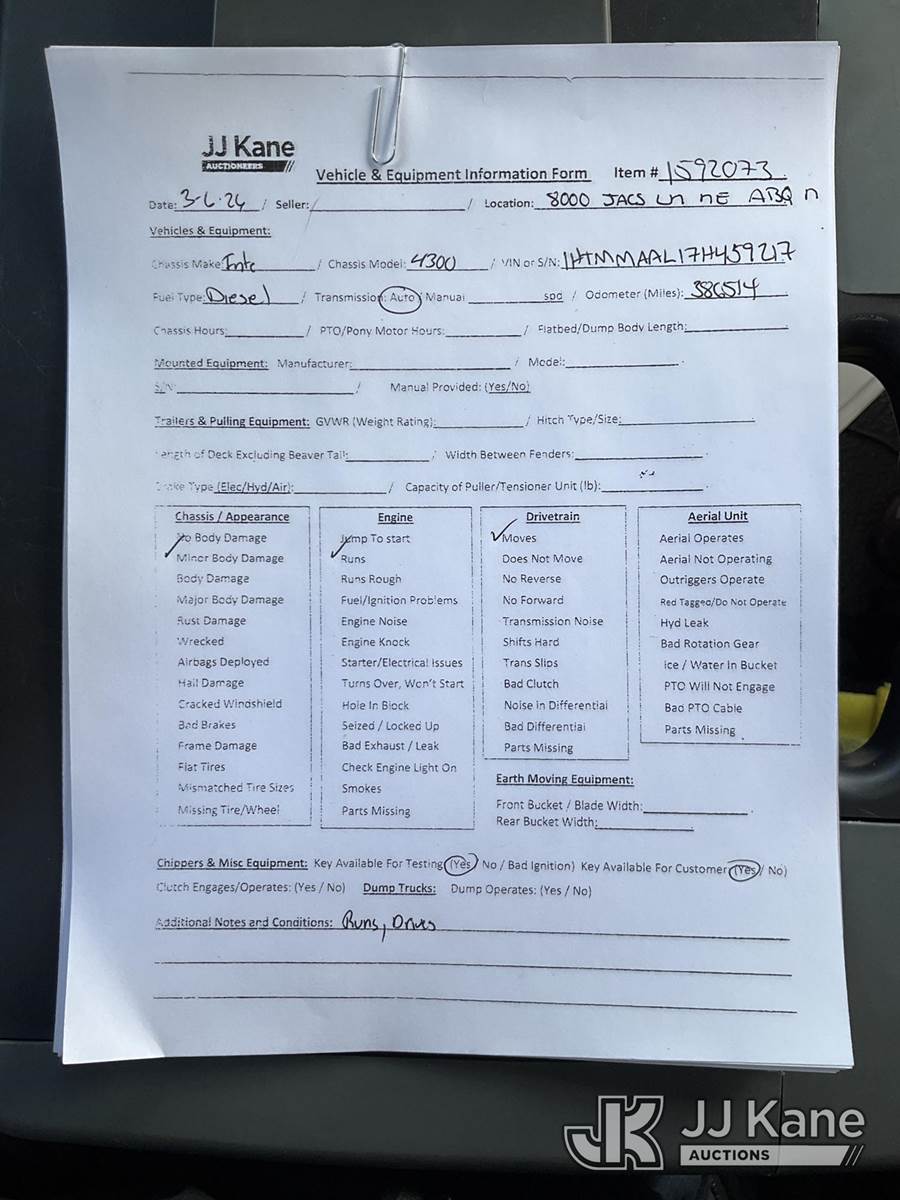 JJ Kane
AUCTIONEERS
Vehicle & Equipment Information Form Item # 1592073
Date: 3-6-24 / Seller: / Location: 8000 JACS Ln NE ABQ n
Vehicles & Equipment:
Chassis Make: Inte / Chassis Model: 4300 / VIN or S/N: 1HTMMAAL17H459217
Fuel Type: Diesel / Transmission: Auto / Manual spd / Odometer (Miles): 386514
Chassis Hours: / PTO/Pony Motor Hours: / Flatbed/Dump Body Length:
Mounted Equipment: Manufacturer: / Model:
S/N: / Manual Provided: (Yes/No)
Trailers & Pulling Equipment: GVWR (Weight Rating): / Hitch Type/Size:
Length of Deck Excluding Beaver Tail: / Width Between Fenders:
Brake Type (Elec/Hyd/Air): / Capacity of Puller/Tensioner Unit (lb):
Chassis / Appearance
No Body Damage
Minor Body Damage
Body Damage
Major Body Damage
Rust Damage
Wrecked
Airbags Deployed
Hail Damage
Cracked Windshield
Bad Brakes
Frame Damage
Flat Tires
Mismatched Tire Sizes
Missing Tire/Wheel
Engine
Jump To start
Runs
Runs Rough
Fuel/Ignition Problems
Engine Noise
Engine Knock
Starter/Electrical Issues
Turns Over, Won't Start
Hole In Block
Seized / Locked Up
Bad Exhaust / Leak
Check Engine Light On
Smokes
Parts Missing
Drivetrain
Moves
Does Not Move
No Reverse
No Forward
Transmission Noise
Shifts Hard
Trans Slips
Bad Clutch
Noise in Differential
Bad Differential
Parts Missing
Aerial Unit
Aerial Operates
Aerial Not Operating
Outriggers Operate
Red Tagged/Do Not Operate
Hyd Leak
Bad Rotation Gear
Ice / Water In Bucket
PTO Will Not Engage
Bad PTO Cable
Parts Missing
Earth Moving Equipment:
Front Bucket / Blade Width:
Rear Bucket Width:
Chippers & Misc Equipment: Key Available For Testing (Yes / No / Bad Ignition) Key Available For Customer (Yes / No)
Clutch Engages/Operates: (Yes / No) Dump Trucks: Dump Operates: (Yes / No)
Additional Notes and Conditions: Runs, Drives
JK JJ Kane
AUCTIONS